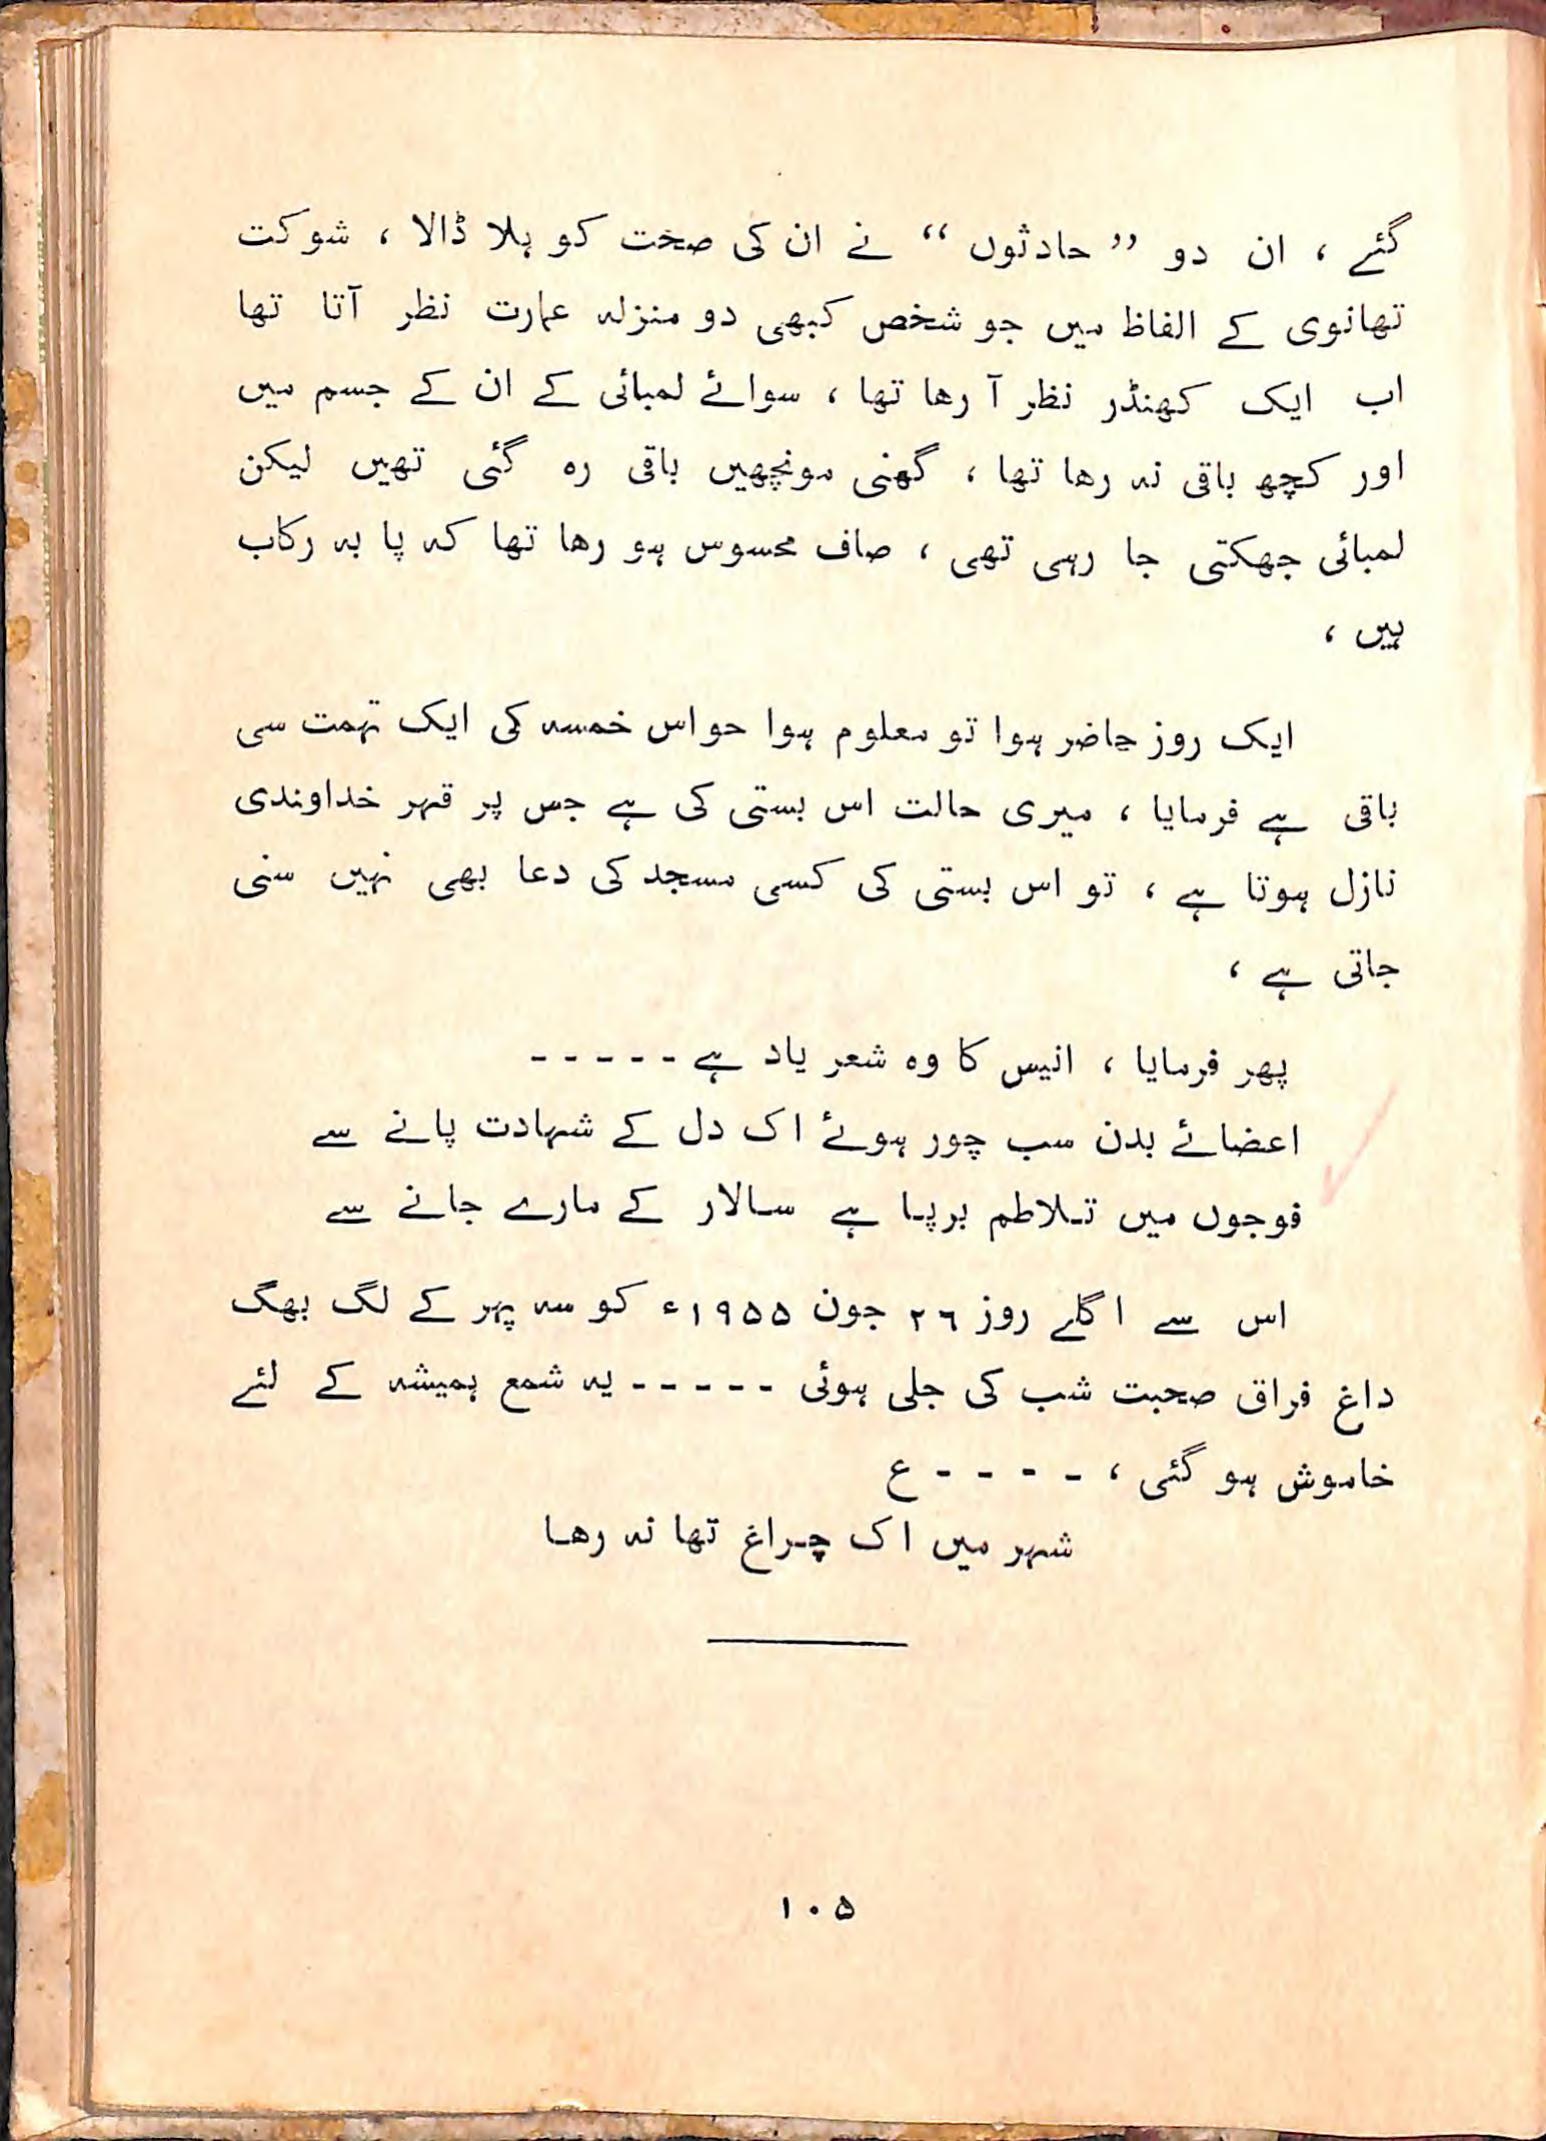 گئے ، ان دو ” حادثوں “ نے ان کی صحت کو ہلا ڈالا ، شوکت
تھانوی کے الفاظ میں جو شخص کبھی دو منزلہ عمارت نظر آتا تھا
اب ایک کھنڈر نظر آ رھا تھا ، سوائے لمبائی کے ان کے جسم میں
اور کچھ باقی نہ رھا تھا ، گھنی مونچھیں باقی رہ گئی تھیں لیکن
لمبائی جھکتی جا رہی تھی ، صاف محسوس ہو رھا تھا کہ پا بہ رکاب
ہیں ،
ایک روز حاضر ہوا تو معلوم ہوا حواس خمسہ کی ایک تہمت سی
باقی ہے فرمایا ، میری حالت اس بستی کی ہے جس پر قہر خداوندی
نازل ہوتا ہے ، تو اس بستی کی کسی مسجد کی دعا بھی نہیں سنی
جاتی ہے ،
پھر فرمایا ، انیس کا وہ شعر یاد ہے - - - - -
اعضائے بدن سب چور ہوئے اک دل کے شہادت پانے سے
فوجوں میں تلاطم برپا ہے سالار کے مارے جانے سے
اس سے اگلے روز ۲٦ جون ۱۹۵۵ء کو سہ پہر کے لگ بھگ
داغ فراق صحبت شب کی جلی ہوئی - - - - - یہ شمع ہمیشہ کے لئے
خاموش ہو گئی ، - - - - ع
شہر میں اک چراغ تھا نہ رھا
۱۰۵